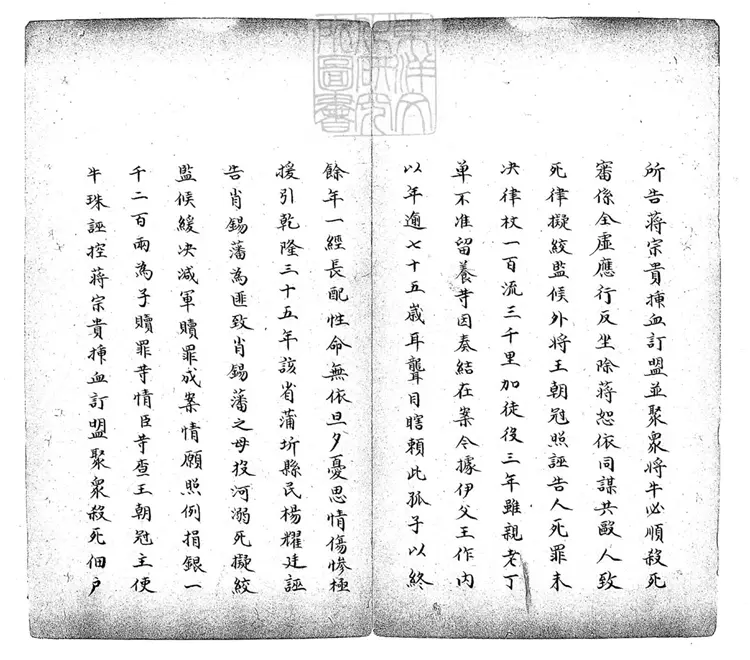 東洋文
化研究
所圖書
所告蔣宗貴揷血訂盟並聚衆將牛必順殺死
審係全虛應行反坐除蔣恕依同謀共毆人致
死律擬絞監候外將王朝冠照誣告人死罪未
决律杖一百流三千里加徒役三年雖親老丁
單不准留養等因奏結在案今據伊父王作內
以年逾七十五歲耳聾目瞎賴此孤子以終
餘年一經長配性命無依旦夕憂思情傷慘極
援引乾隆三十五年該省蒲圻縣民楊耀廷誣
告肖錫藩為匪致肖錫藩之母投河溺死擬絞
監候緩决减軍贖罪成案情願照例捐銀一
千二百兩為子贖罪等情臣等查王朝冠主使
牛珠誣控蔣宗貴揷血訂盟聚衆殺死佃户